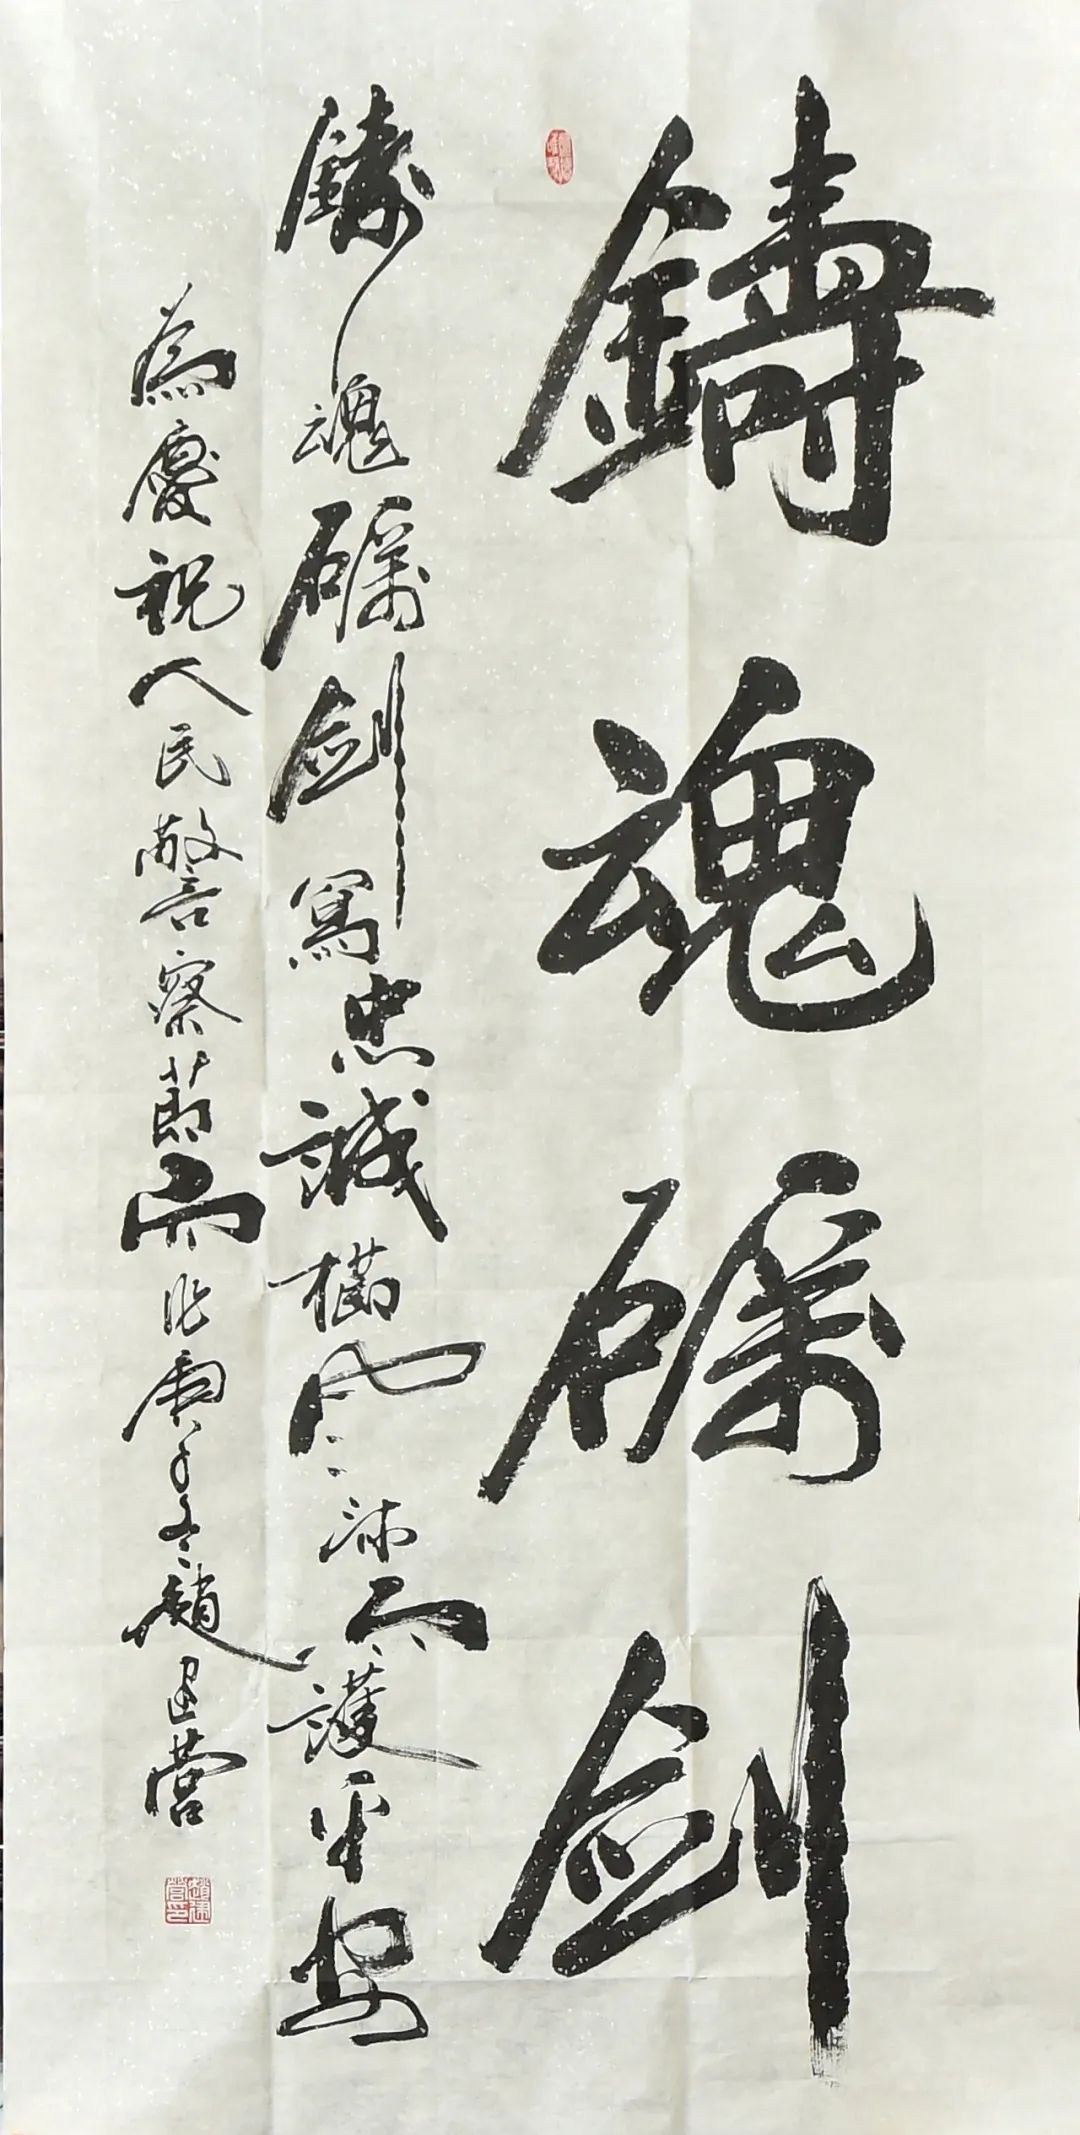 鑄魂礪劍
鑄魂礪劍寫忠誠櫛風沐雨護平安
為慶祝人民警察節而作庚子冬趙建營